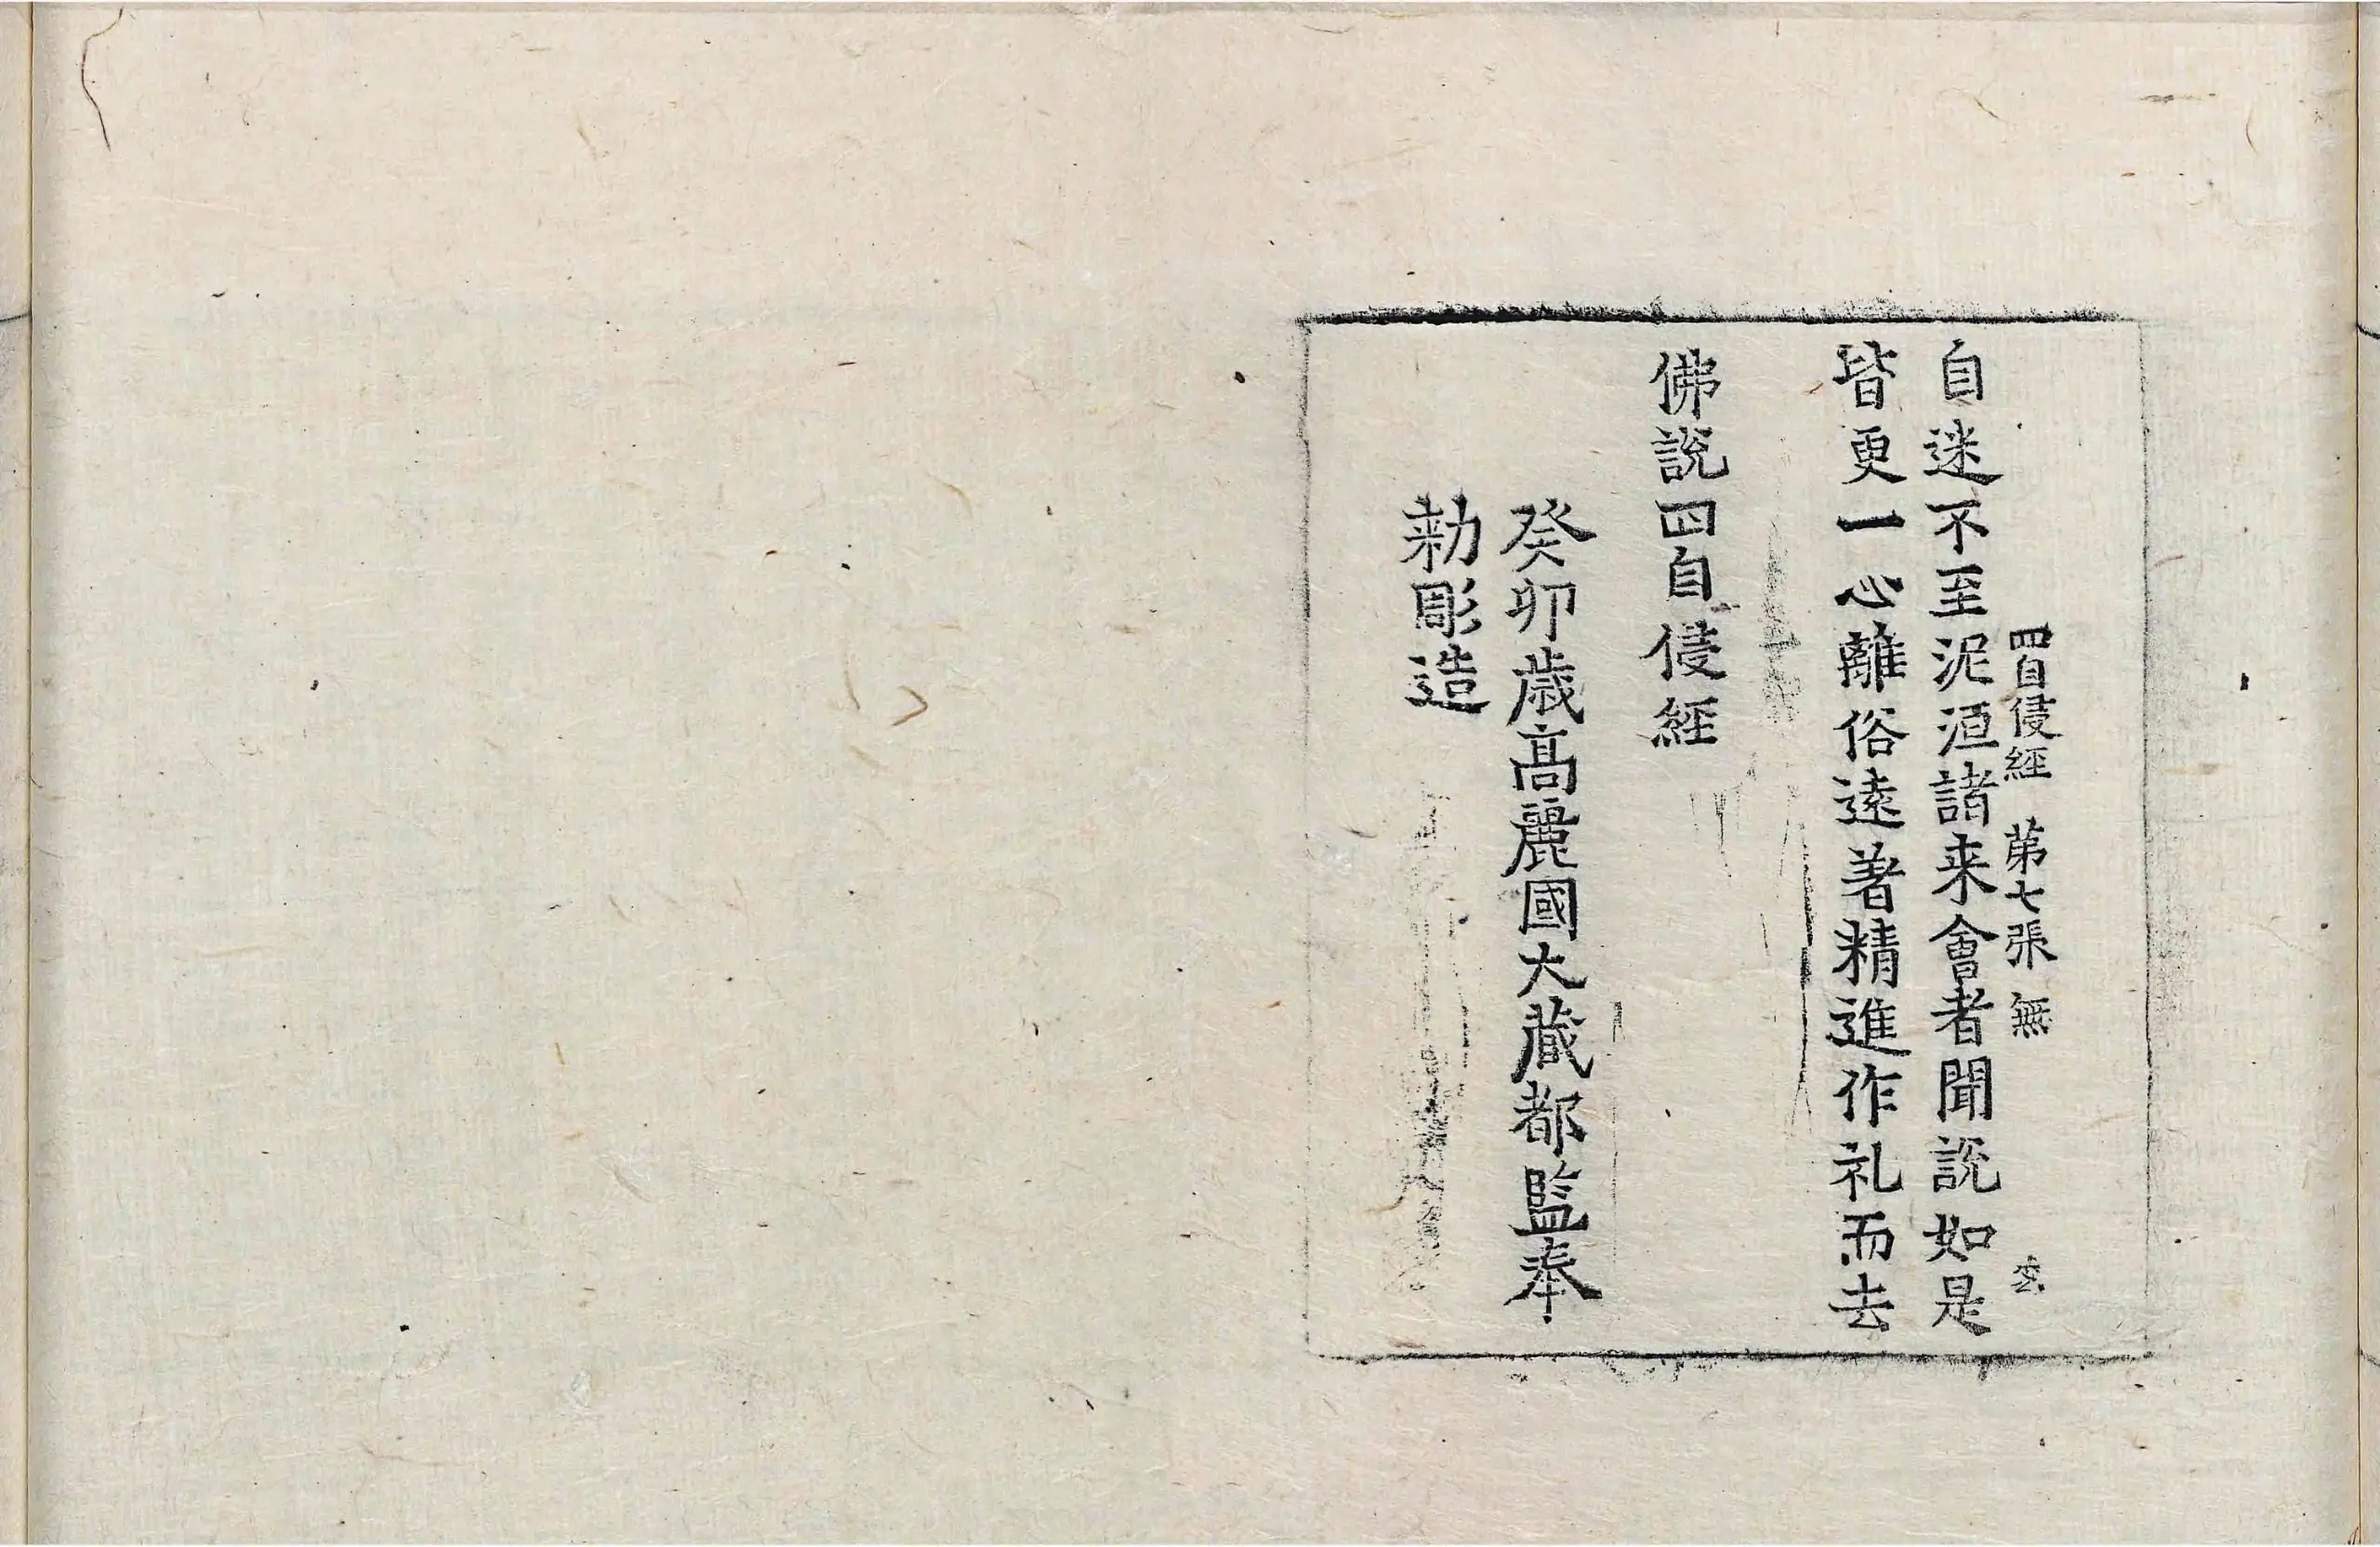 四自侵經 苐七張 無
自迷不至泥洹諸来會者聞說如是
皆更一心離俗遠著精進作礼而去
佛說四自侵經
癸卯歳高麗國大藏都監奉
勑彫造